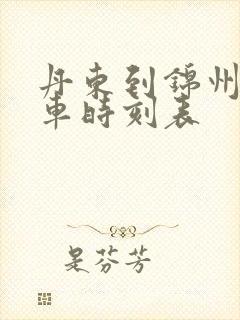 丹東到錦州
車時刻表
是芬芳